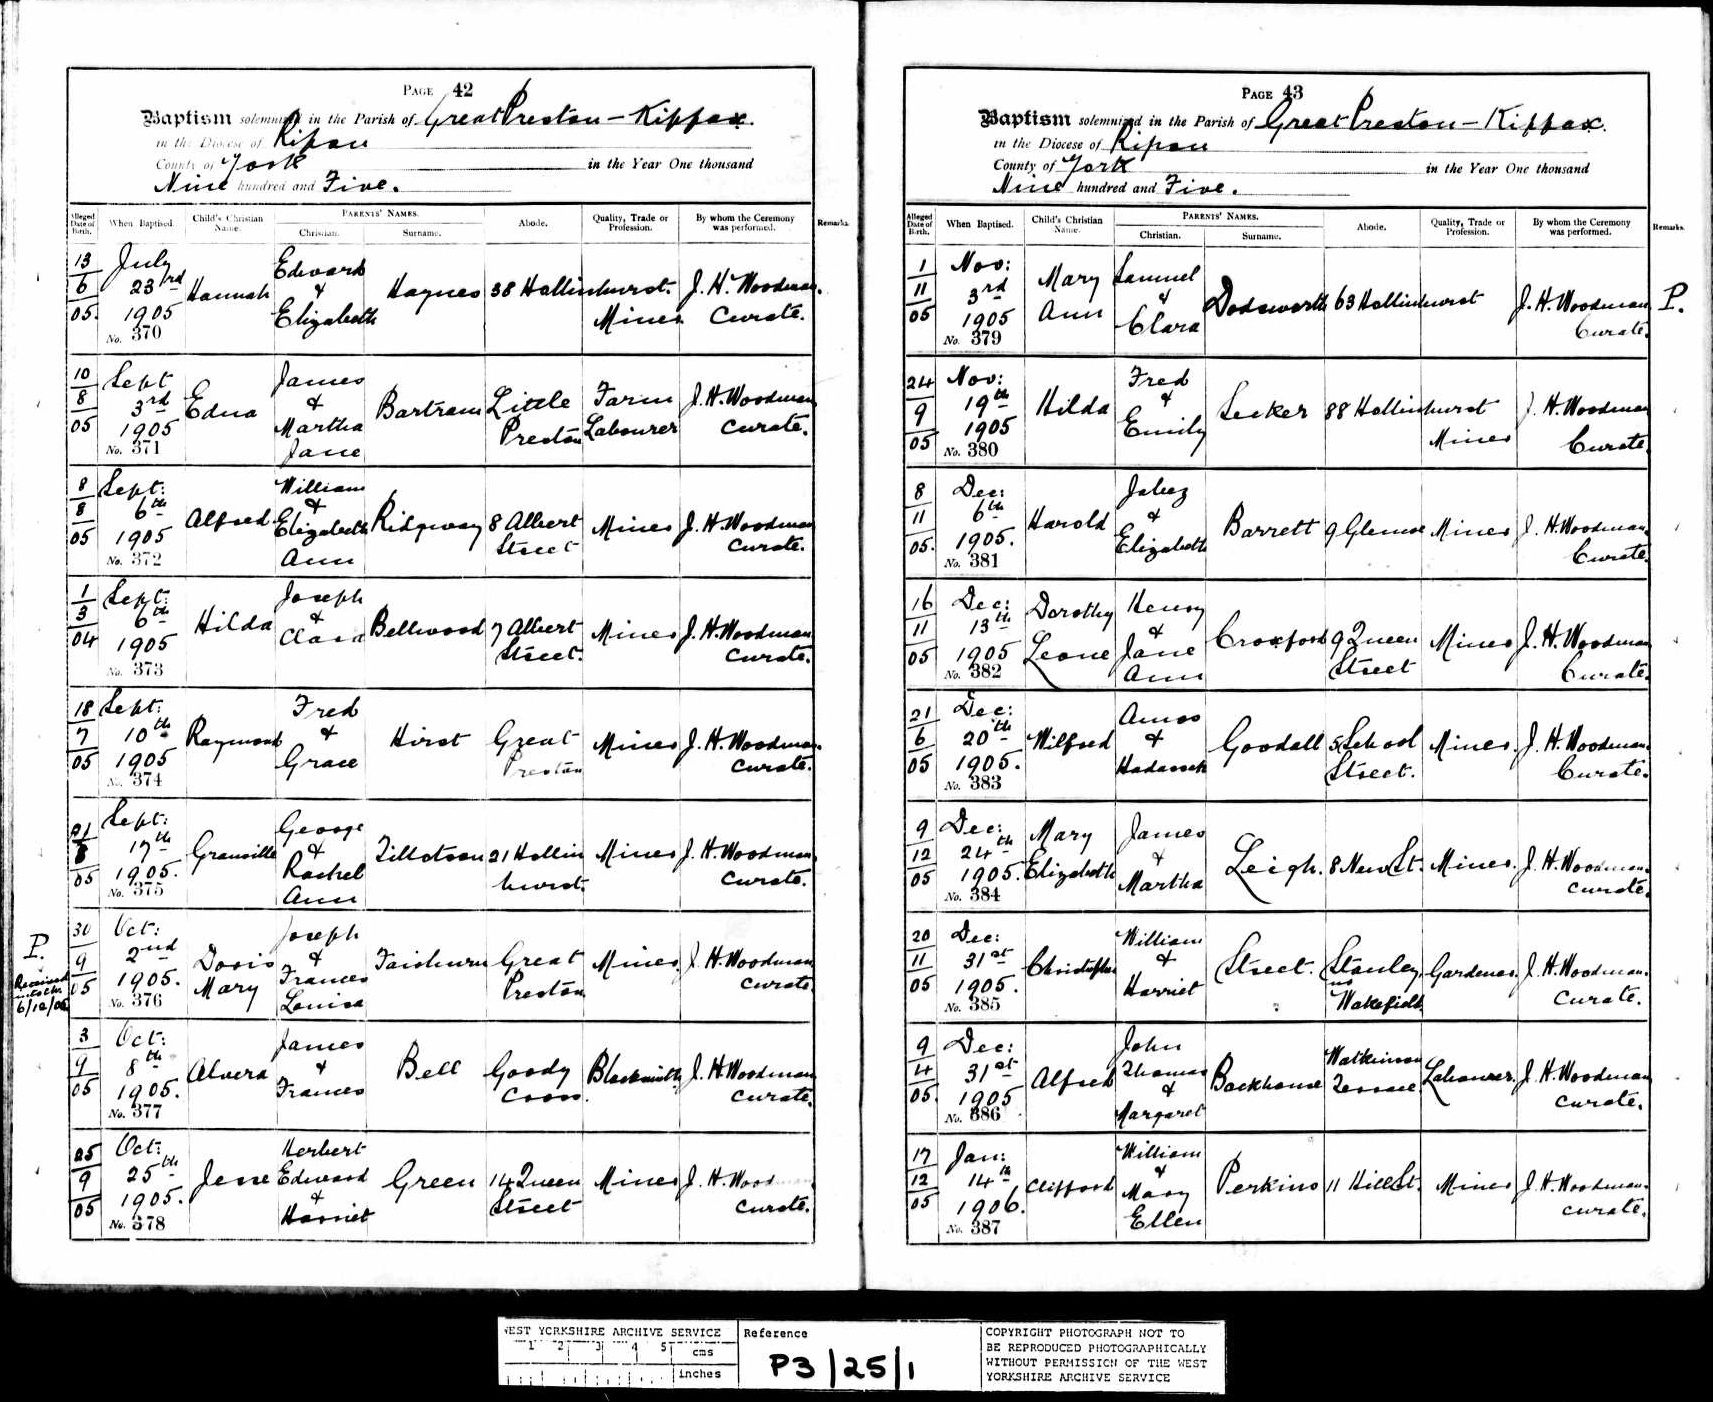 PAGE 42
Baptism solemnized in the Parish of Great Preston - Kippax.
in the Diocese of Ripon
County of York in the Year One thousand
Nine hundred and Five.
Alleged Date of Birth. When Baptised. Child's Christian Name. PARENTS' NAMES. Christian. Surname. Abode. Quality, Trade or Profession. By whom the Ceremony was performed. Remarks.
13 6 05. July 23rd 1905 No. 370 Hannah Edward & Elizabeth Haynes 38 Hollinhurst. Miner J. H. Woodman. Curate.
10 8 05 Sept 3rd 1905 No. 371 Edna James & Martha Jane Bartram Little Preston Farm Labourer J. H. Woodman Curate.
8 8 05 Sept: 6th 1905 No. 372 Alfred William & Elizabeth Ann Ridgway 8 Albert Street Miner J. H. Woodman Curate.
1 3 04 Sept: 6th 1905 No. 373 Hilda Joseph & Clara Bellwood 7 Albert Street. Miner J. H. Woodman Curate.
18 7 05 Sept: 10th 1905 No. 374 Raymond Fred & Grace Hirst Great Preston Miner J. H. Woodman. Curate.
21 8 05 Sept: 17th 1905. No. 375 Granville George & Rachel Ann Tillotson 21 Hollin hurst. Miner J. H. Woodman. Curate.
P. Received into Ch. 6/12/05
30 9 05 Oct: 2nd 1905. No. 376 Doris Mary Joseph & Frances Louisa Fairburn Great Preston Miner. J. H. Woodman Curate.
3 9 05 Oct: 8th 1905. No. 377 Alvera James & Frances Bell Goody Cross. Blacksmith J. H. Woodman Curate.
25 9 05 Oct: 25th 1905. No. 378 Jesse Herbert Edward & Harriet Green 14 Queen Street Miner J. H. Wood Curate.
PAGE 43
Baptism solemnized in the Parish of Great Preston - Kippax.
in the Diocese of Ripon
County of York in the Year One thousand
Nine hundred and Five.
Alleged Date of Birth. When Baptised. Child's Christian Name. PARENTS' NAMES. Christian. Surname. Abode. Quality, Trade or Profession. By whom the Ceremony was performed. Remarks.
1 11 05 Nov: 3rd 1905 No. 379 Mary Ann Samuel & Clara Dodsworth 63 Hollinhurst J. H. Woodman Curate. P.
24 9 05 Nov: 19th 1905 No. 380 Hilda Fred & Emily Secker 88 Hollinhurst Miner J. H. Woodman Curate
8 11 05. Dec: 6th 1905. No. 381 Harold Jabez & Elizabeth Barrett 9 Miner J. H. Woodman. Curate.
16 11 05 Dec: 13th 1905 No. 382 Dorothy Leone Henry & Jane Ann Croxford 9 Queen Street Miner J. H. Woodman Curate.
21 6 05 Dec: 20th 1905. No. 383 Wilfred Amos & Hadassah Goodall 5 School Street. Miner. J. H. Woodman. Curate.
9 12 05 Dec: 24th 1905. No. 384 Mary Elizabeth James & Martha Leigh. 8 New St. Miner. J. H. Woodman. Curate.
20 11 05 Dec: 31st 1905. No. 385 Christopher William & Harriet Street. Stanley nr Wakefield. Gardener. J. H. Woodman. Curate.
9 4 05. Dec: 31st 1905 No. 386 Alfred John Thomas & Margaret Backhouse Watkinson Terrace Labourer. J. H. Woodman Curate.
17 12 05 Jan: 14th 1906. No. 387 Clifford William & Mary Ellen Perkins 11 Hill St. Miner J. H. Woodman. Curate.
WEST YORKSHIRE ARCHIVE SERVICE
1 2 3 4 5 cms
inches
Reference
P3/25/1
COPYRIGHT PHOTOGRAPH NOT TO
BE REPRODUCED PHOTOGRAPHICALLY
WITHOUT PERMISSION OF THE WEST
YORKSHIRE ARCHIVE SERVICE